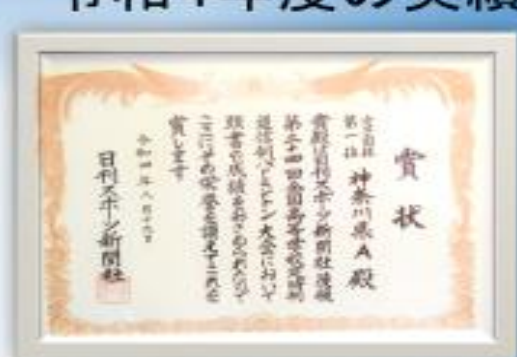 令和4年度の実績
賞状
女子団体
第一位 神奈川県A殿
貴殿は日刊スポーツ新聞社後援
第三十四回全国高等学校定時制
通信制バドミントン大会において
頭書の成績をおさめられたので
ここにその栄誉を讃えてこれを
賞します
令和四年八月十六日
日刊スポーツ新聞社